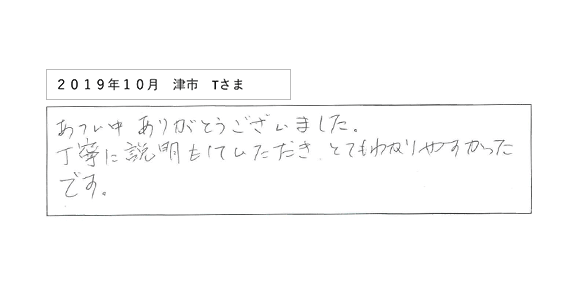 ２０１９年１０月　津市　Tさま
あつい中 ありがとうございました。
丁寧に説明もしていただき、とてもわかりやすかった
です。